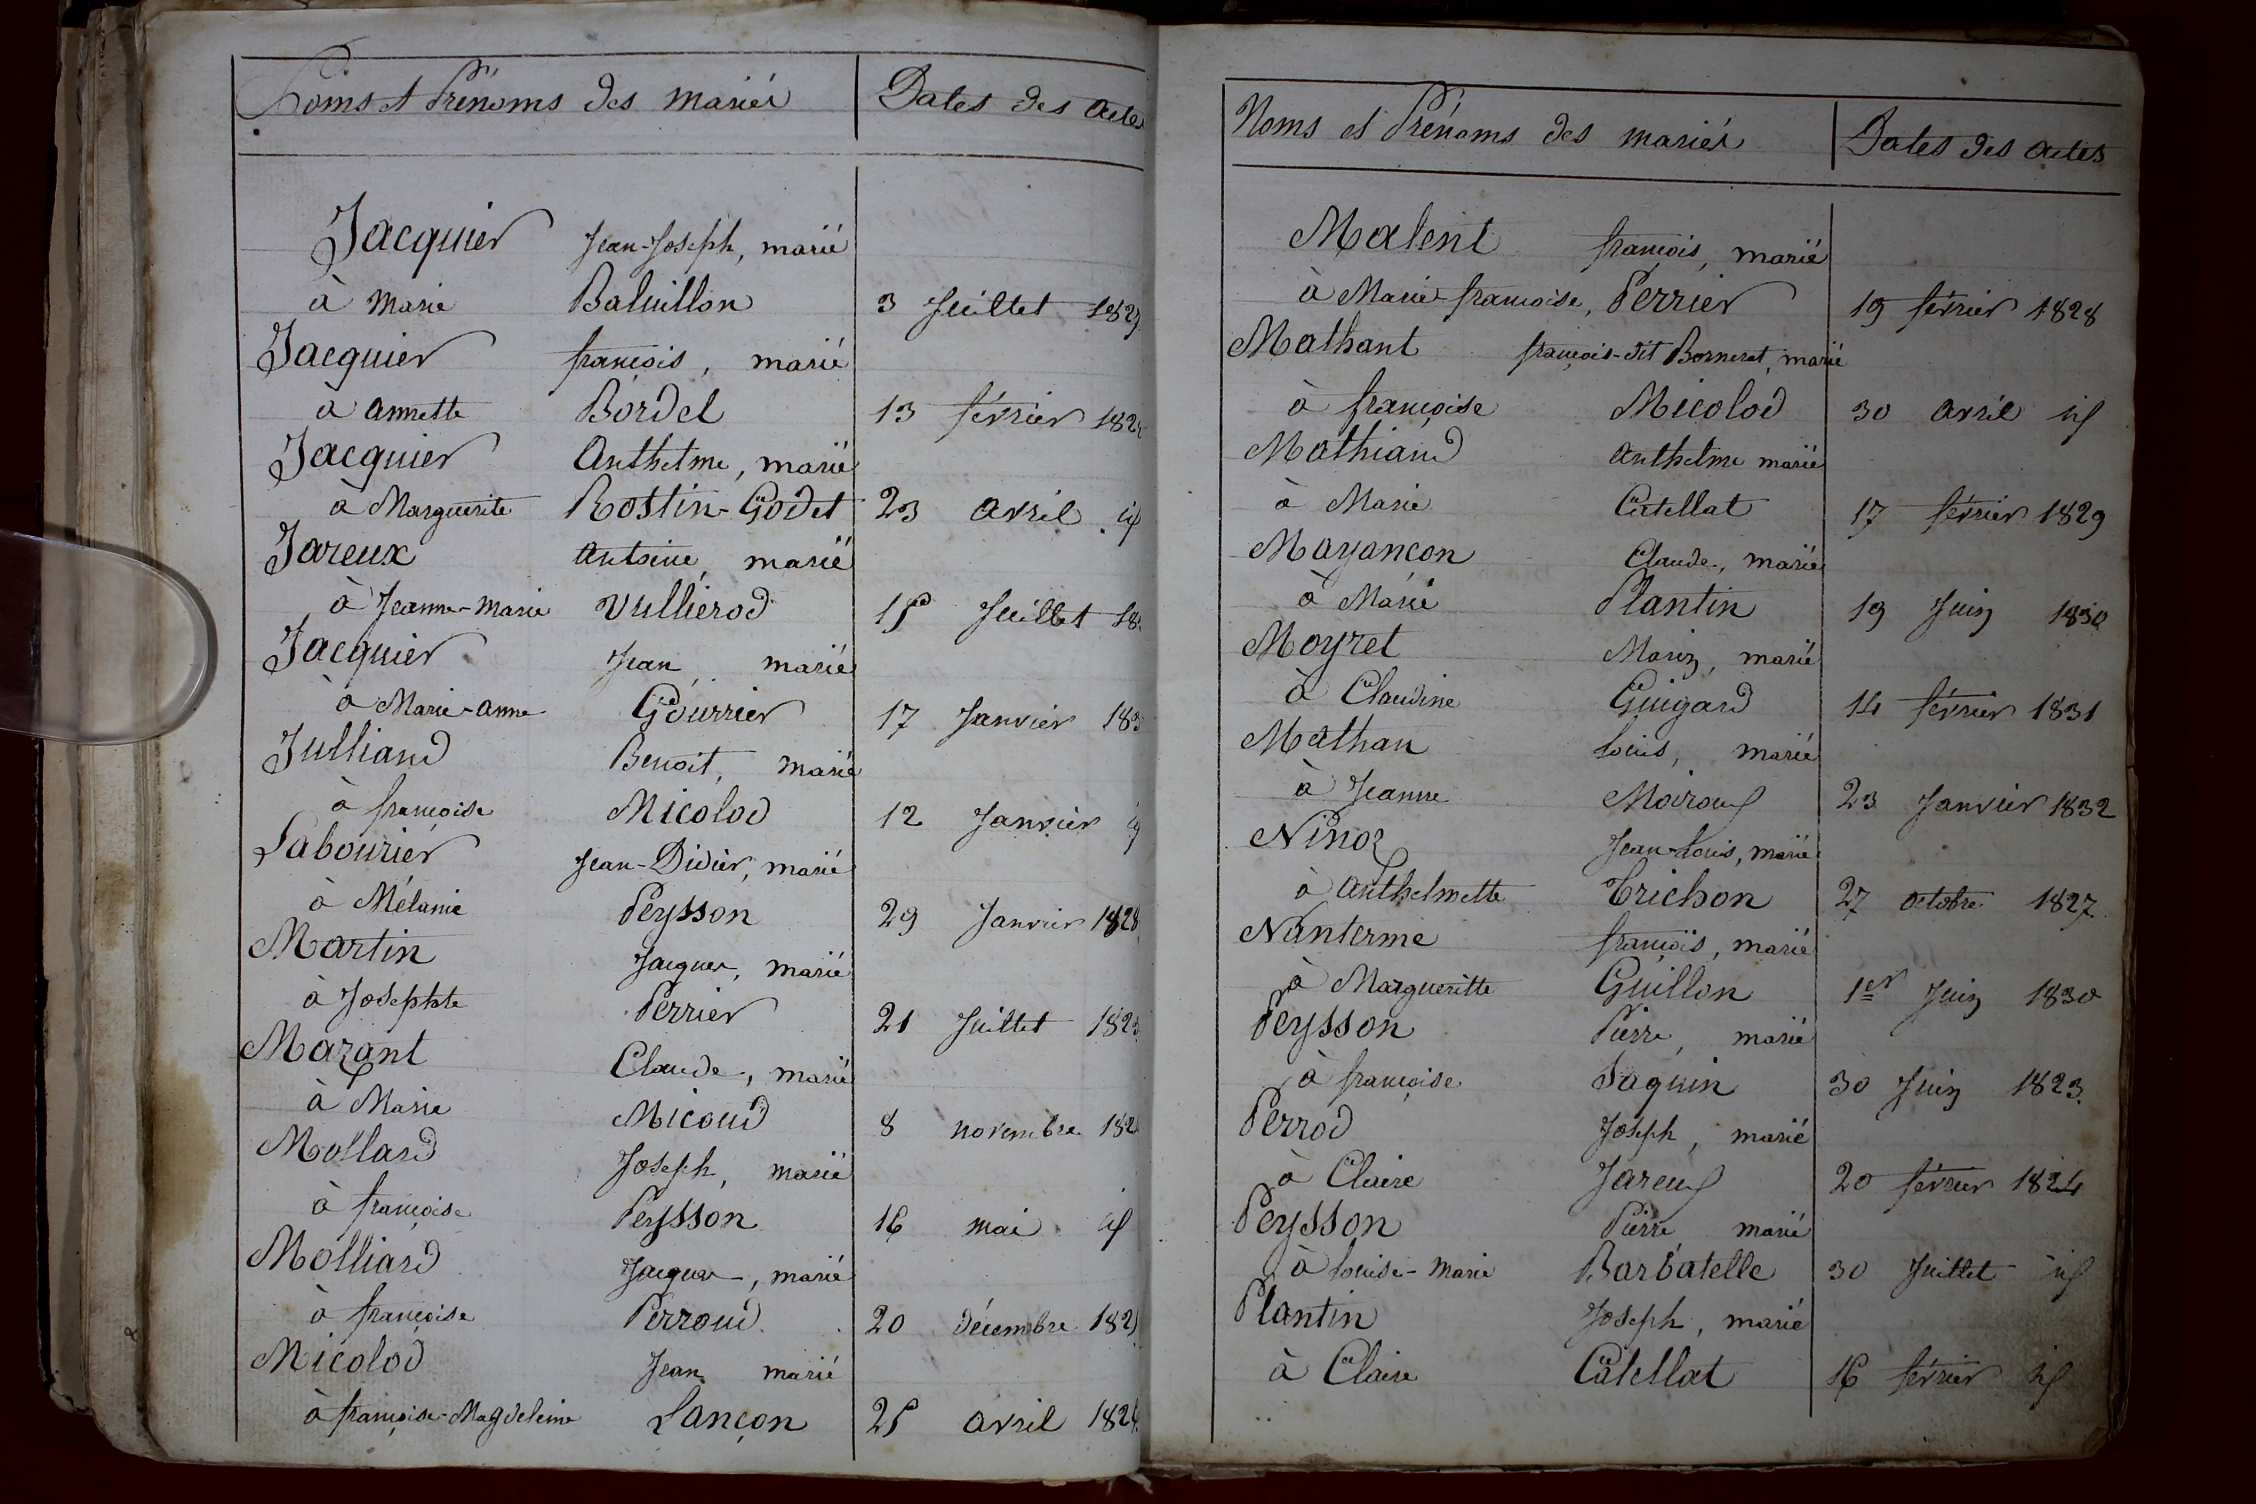 Noms et Prénoms des mariés Dates des actes
Jacquier Jean-Joseph, marié
à Marie Baluillon 3 Juillet
Jacquier françois, marié
à annette Bordel 13 février
Jacquier Anthelme, marié
à Marguerite Rostin-Godet 23 avril id
Jareux antoine, marié
à Jeanne-Marie Vullierod 15 Juillet
Jacquier Jean, marié
à Marie-anne Gourrier 17 Janvier
Julliand Benoit, marié
à françoise Micolod 12 Janvier
Labourier Jean-Didier, marié
à Mélanie Peysson 29 Janvier 1828
Martin Jacques, marié
à Josephte Perrier 21 Juillet
Mazant Claude, marié
à Marie Micoud 8 novembre
Mollard Joseph, marié
à françoise Peysson 16 mai id
Molliard Jacques, marié
à françoise Perroud 20 décembre
Micolod Jean marié
à françoise-Magdeleine Lançon 25 avril
Noms et Prénoms des mariés Dates des actes
Malent françois, marié
à Marie-francoise, Perrier 19 février 1828
Mathant françois-dit Borneret, marié
à françoise Micolod 30 avril id
Mathiand Anthelme marié
à Marie Catellat 17 février 1829
Mayancon Claude, marié
à Marie Plantin 19 Juin 1830
Moyret Marin, marié
à Claudine Guigard 14 février 1831
Mathan Louis, marié
à Jeanne Moiroux 23 Janvier 1832
Ninoz Jean-Louis, marié
à anthelmette Trichon 27 octobre 1827
Nanterme françois, marié
à Margueritte Guillon 1er Juin 1830
Peysson Pierre, marié
à françoise Jaquin 30 Juin 1823
Perrod Joseph, marié
à Claire Jareux 20 février 1824
Peysson Pierre marié
à Louise-Marie Barbatelle 30 Juillet id
Plantin Joseph, marié
à Claire Catellat 16 février id